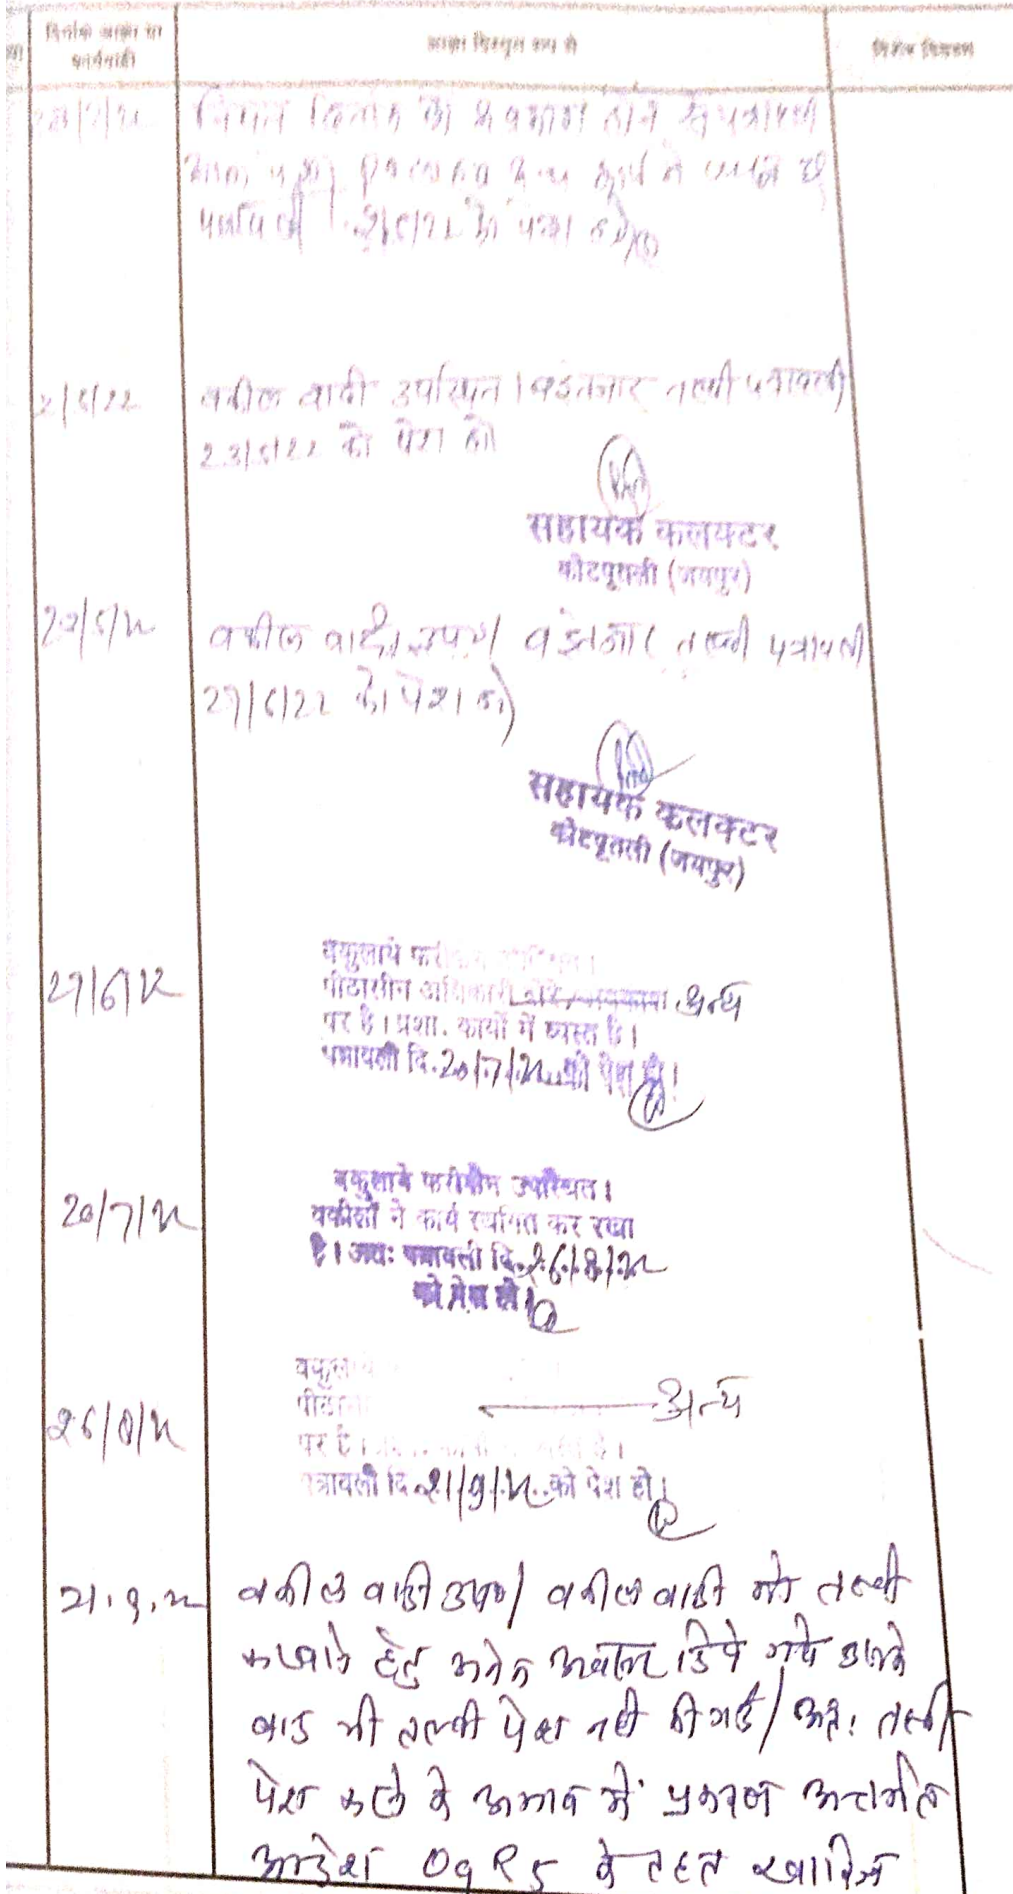 दिनांक आज्ञा या
कार्यवाही
आज्ञा विस्तृत रूप से
विशेष विवरण
नियत दिनांक को अवकाश होने से पत्रावली
पत्रावली 2/5/22 को पेश हो
2/5/22
वकील वादी उपस्थित। बइंतजार तलबी पत्रावली
23/5/22 को पेश हो
सहायक कलक्टर
कोटपूतली (जयपुर)
23/5/22
वकील वादी उप०/ बइंतजार तलबी पत्रावली
27/6/22 को पेश हो
सहायक कलक्टर
कोटपूतली (जयपुर)
27/6/22
वकुलाये फरीकैन उपस्थित।
पीठासीन अधिकारी दौरे/अवकाश अन्य
पर है। प्रशा. कार्यों में व्यस्त है।
पत्रावली दि. 20/7/22 को पेश हो।
20/7/22
वकुलाये फरीकैन उपस्थित।
वकीलों ने कार्य स्थगित कर रखा
है। अतः पत्रावली दि. 26/8/22
को पेश हो।
26/8/22
वकुला
पीठा
अन्य
पर है।
पत्रावली दि. 21/9/22 को पेश हो।
21.9.22
वकील वादी उप०/ वकील वादी को तलबी
करवाने हेतु अनेक अवसर दिये गये उसके
बाद भी तलबी पेश नही की गई/ अतः तलबी
पेश करने के अभाव में प्रकरण अन्तर्गत
आदेश 09 R5 के तहत खारिज